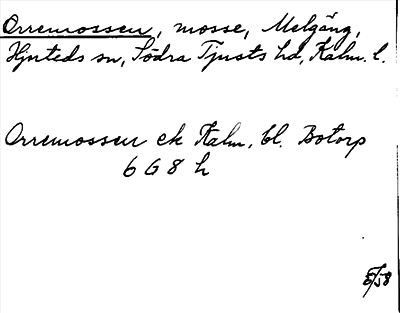 Orremossen, mosse, Melgång,
Hjorteds sn, Södra Tjusts hd, Kalm. l.
Orremossen ek Kalm, bl. Botorp
6 G 8 h
E/58